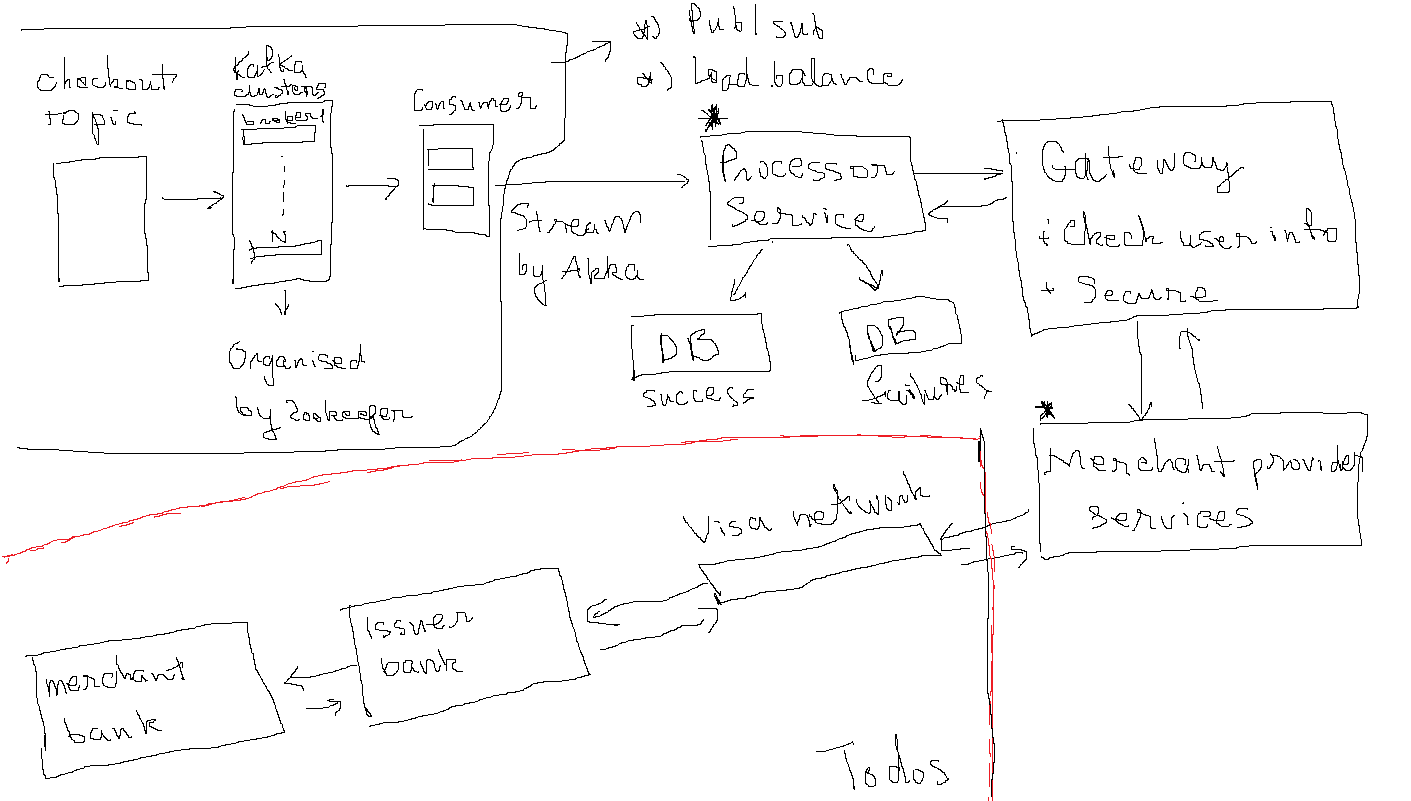 *) Publsub
*) Load balance
checkout
topic
Kafka
clusters
broker1
N
Organised
by Zookeefer
Consumer
Stream
by Akka
*
Processor
Service
DB
success
DB
failures
Gateway
+ Check user info
+ Secure
*
Merchant provider
services
Visa network
issuer
bank
merchant
bank
Todos